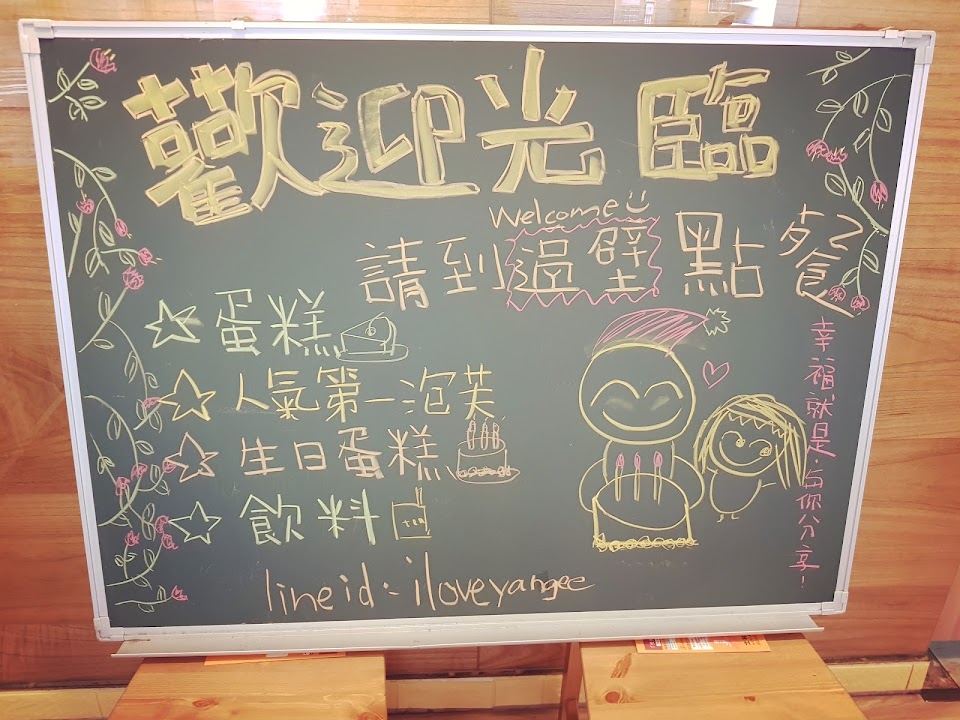 歡迎光臨
Welcome
請到過壁點餐
☆蛋糕
☆人氣第一泡芙
☆生日蛋糕
☆飲料
tea
line id: iloveyangee
幸福就是,有你分享!